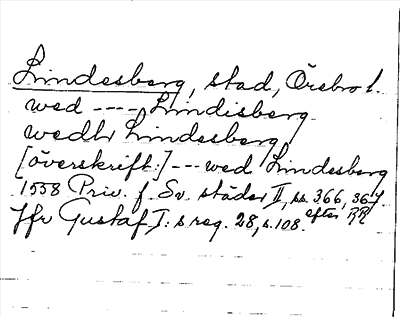 Lindesberg, stad, Örebro l.
wed ---- Lindisberg
wedhr Lindesberg
[överskrift:] --- wed Lindesberg
1558 Priv. f. Sv. städer II, ss. 366, 367
efter RR
Jfr Gustaf I:s reg. 28, s. 108.